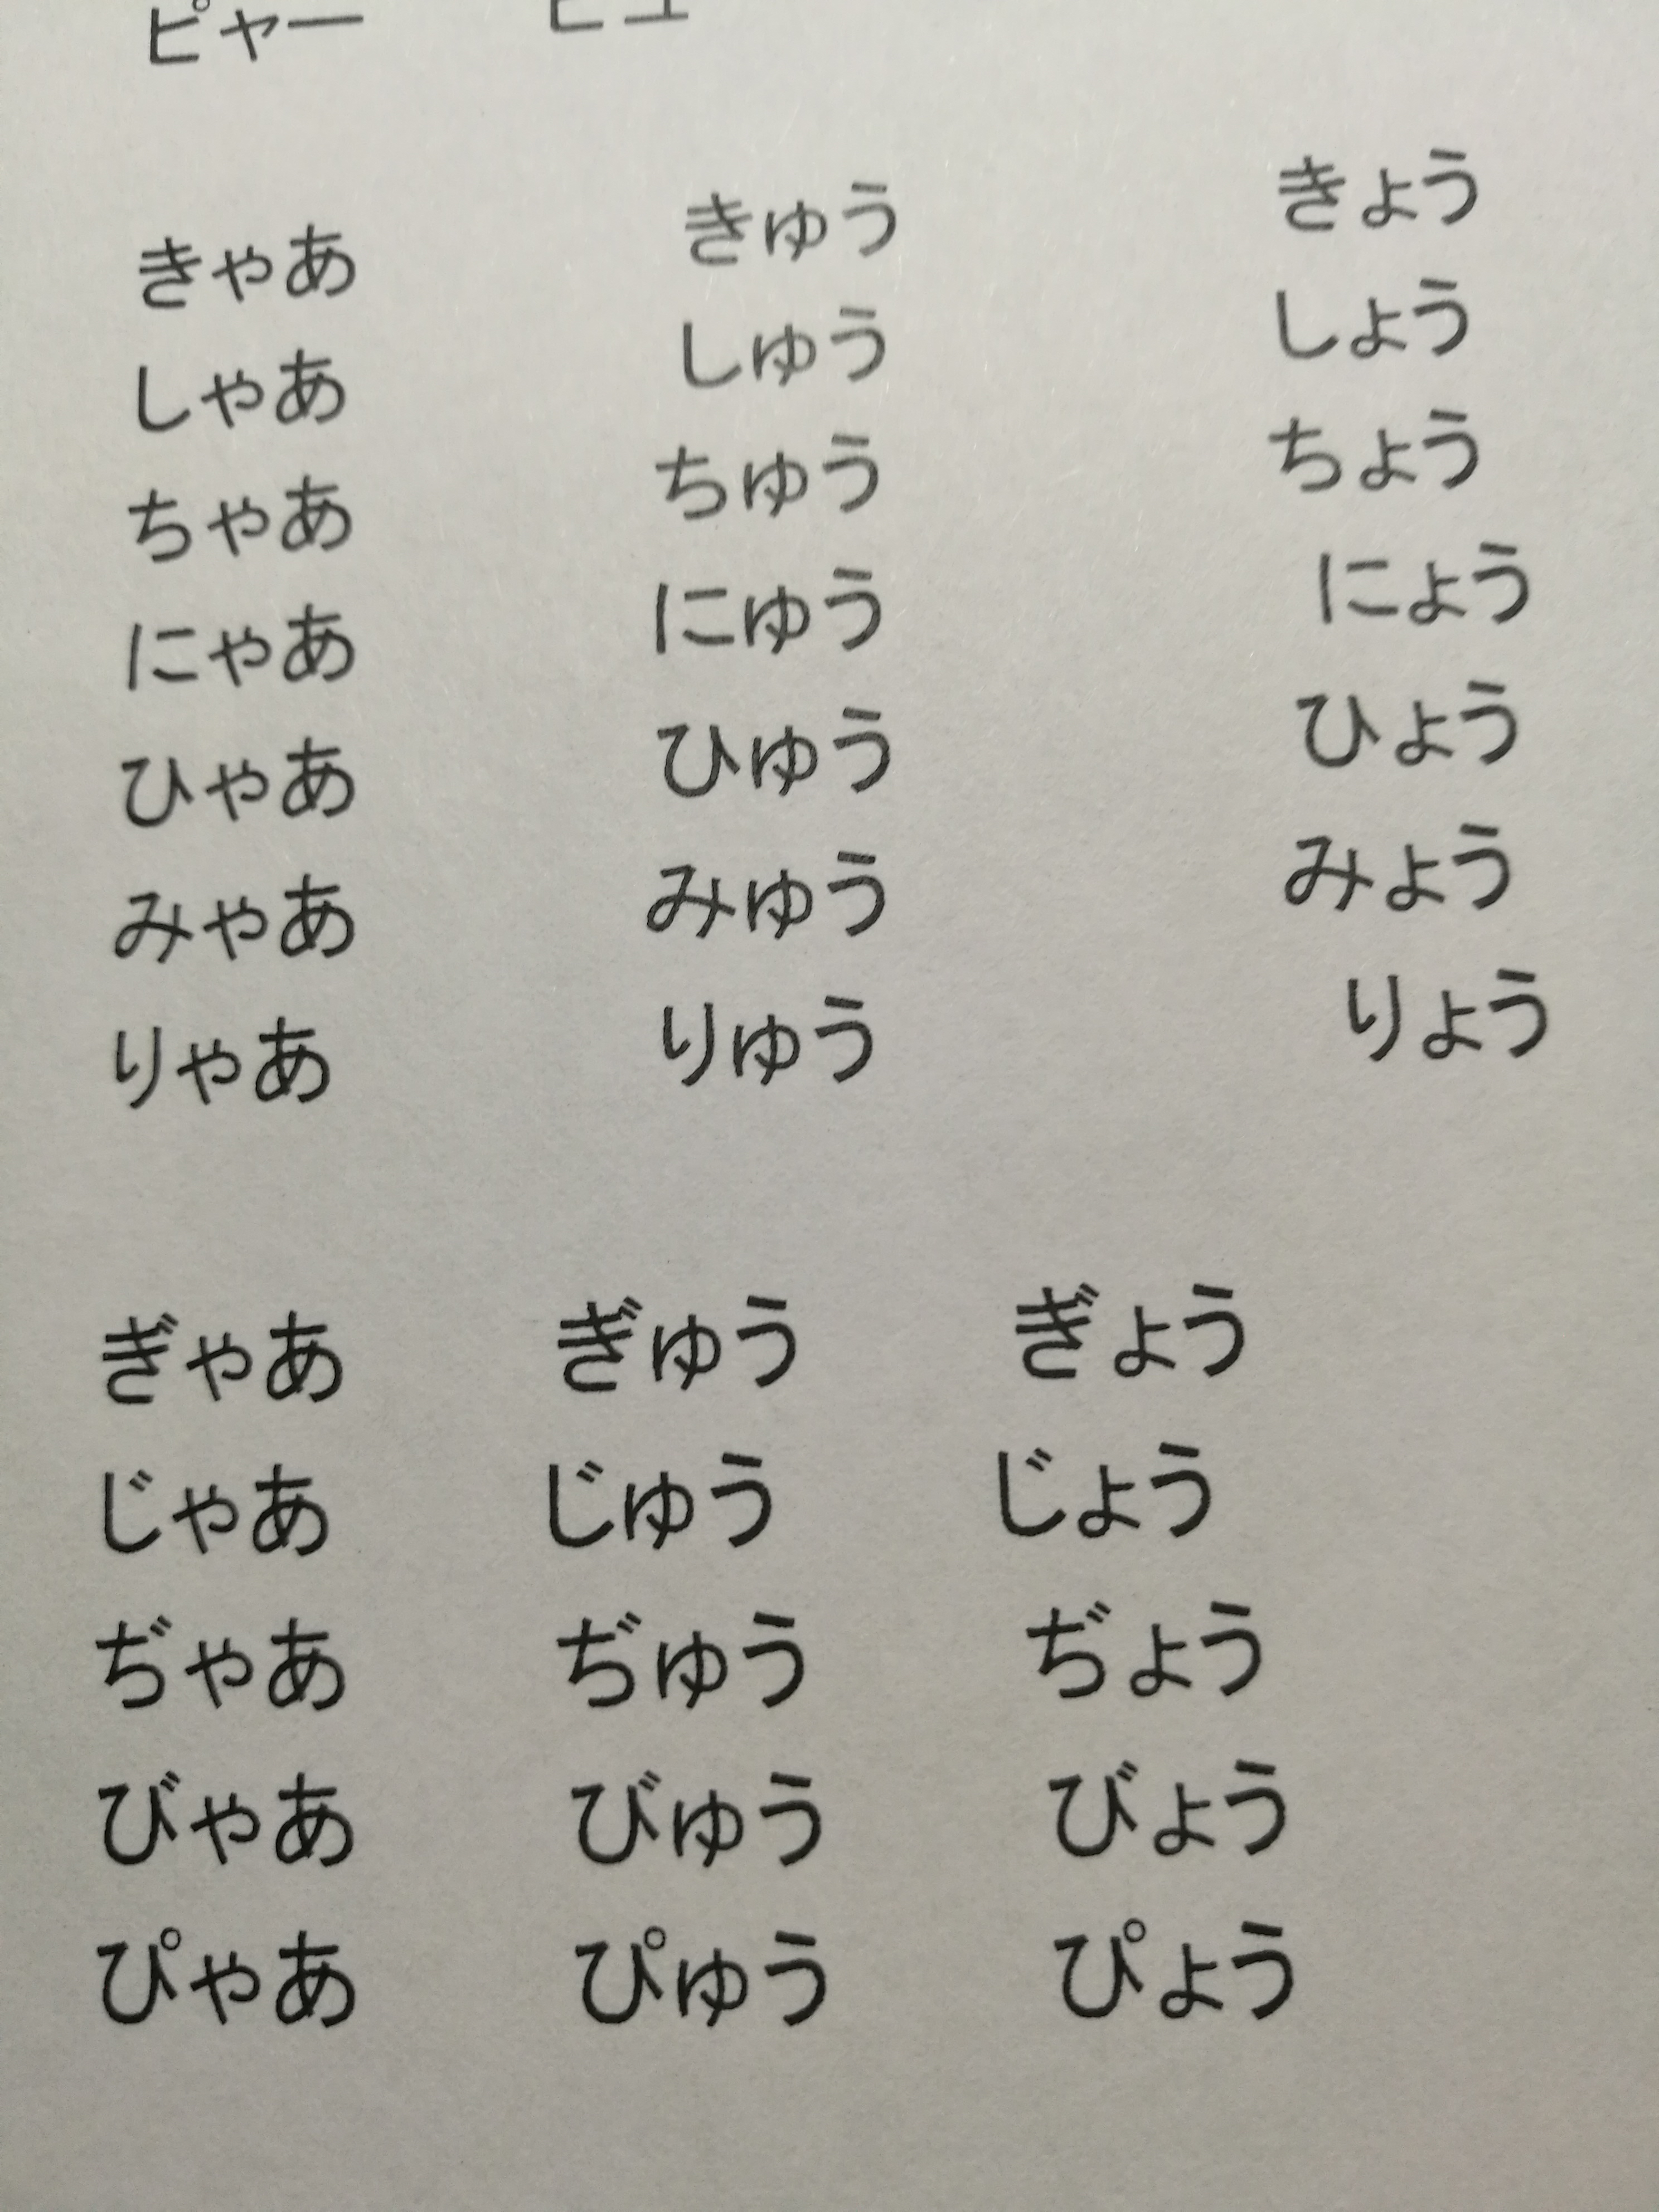 ピャー
きゃあ きゅう きょう
しゃあ しゅう しょう
ちゃあ ちゅう ちょう
にゃあ にゅう にょう
ひゃあ ひゅう ひょう
みゃあ みゅう みょう
りゃあ りゅう りょう
ぎゃあ ぎゅう ぎょう
じゃあ じゅう じょう
ぢゃあ ぢゅう ぢょう
びゃあ びゅう びょう
ぴゃあ ぴゅう ぴょう